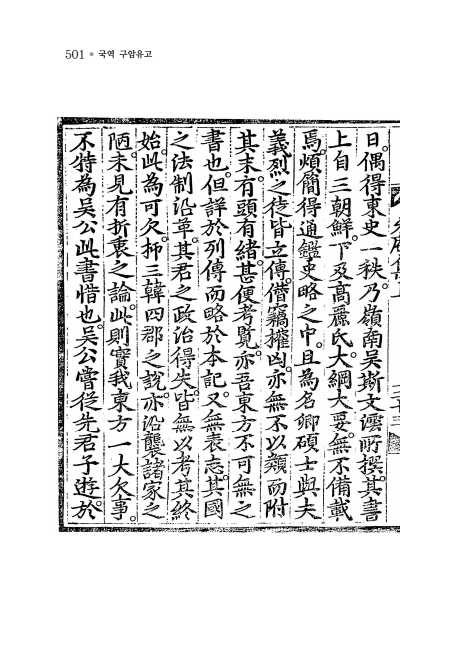 501 ● 국역 구암유고
日。偶得東史一秩。乃嶺南吳斯文澐所撰。其書
上自三朝鮮。下及高麗氏。大綱大要。無不備載
焉。頗簡得通鑑史略之中。且為名卿碩士與夫
義烈之徒皆立傳。僭竊權凶。亦無不以類而附
其末。有頭有緖。甚便考覽。亦吾東方不可無之
書也。但詳於列傳而略於本記。又無表志。其國
之法制沿革。其君之政治得失。皆無以考其終
始。此為可欠。抑三韓四郡之說。亦沿襲諸家之
陋。未見有折衷之論。此則實我東方一大欠事。
不特為吳公此書惜也。吳公嘗從先君子遊於。